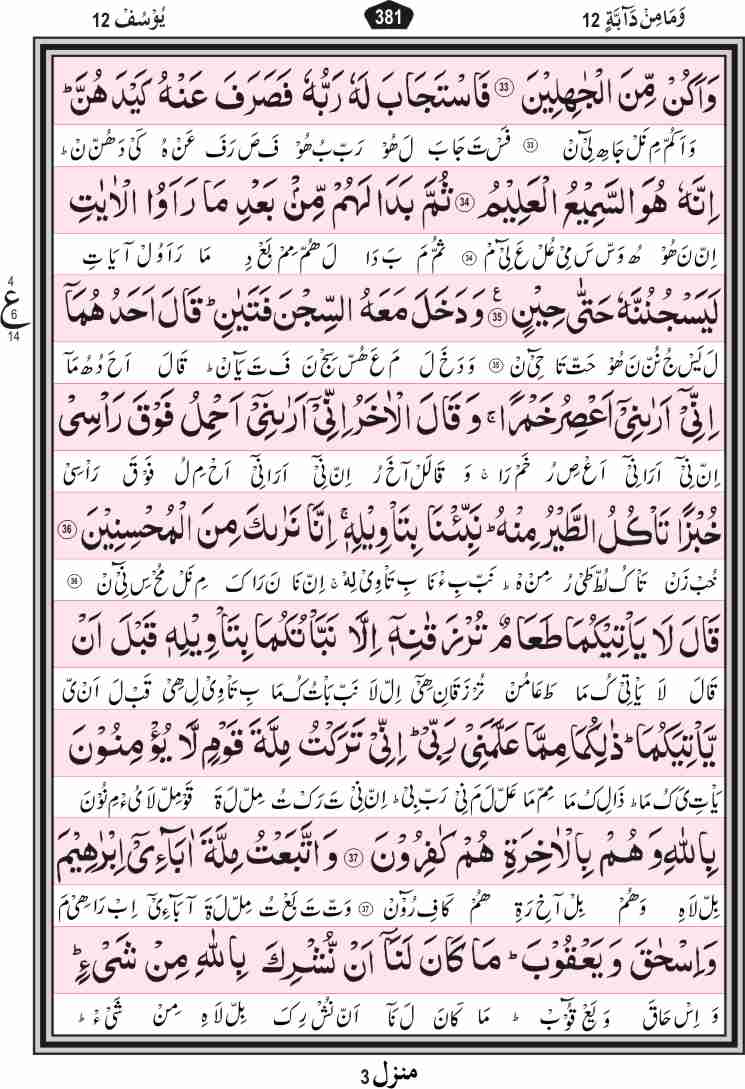 وَمَا مِنْ دَآبَّةٍ 12
381
يُوْسُف 12
وَاَكُنْ مِّنَ الْجٰهِلِيْنَ ۝33 فَاسْتَجَابَ لَهٗ رَبُّهٗ فَصَرَفَ عَنْهُ كَيْدَهُنَّ ؕ
وَ اَكُمْ مِ نَلْ جَاهِ لِىْٓ نْ 33 فَسْ تَ جَابَ لَ هُوْ رَبْ بُ هُوْ فَ صَ رَفَ عَنْ هُ كَىْ دَ هُنْ نْ ؕ
اِنَّهٗ هُوَ السَّمِيْعُ الْعَلِيْمُ ۝34 ثُمَّ بَدَا لَهُمْ مِّنْۢ بَعْدِ مَا رَاَوُا الْاٰيٰتِ
اِنْ نَ هُوْ هُ وَسْ سَ مِىْ عُلْ عَ لِىْٓ مْ 34 ثُمْ مَ بَ دَا لَ هُمْ مِمْ بَعْ دِ مَا رَ اَوُلْ آ يَا تِ
لَيَسْجُنُنَّهٗ حَتّٰى حِيْنٍ ۝35 ع وَدَخَلَ مَعَهُ السِّجْنَ فَتَيٰنِ ؕ قَالَ اَحَدُهُمَاۤ
4
ع
6
14
لَ يَسْ جُ نُنْ نَ هُوْ حَتْ تَا حِىْٓ نْ 35 وَ دَ خَ لَ مَ عَ هُسْ سِجْ نَ فَ تَ يَانْ ؕ قَالَ اَحَ دُ هُ مَاۤ
اِنِّىْۤ اَرٰىنِىْۤ اَعْصِرُ خَمْرًا ۚ وَقَالَ الْاٰخَرُ اِنِّىْۤ اَرٰىنِىْۤ اَحْمِلُ فَوْقَ رَاْسِىْ
اِنْ نِىْۤ اَرَانِىْۤ اَعْ صِ رُ خَمْ رَا ۚ وَ قَالَلْ آ خَ رُ اِنْ نِىْۤ اَرَانِىْۤ اَحْ مِ لُ فَوْ قَ رَاْ سِىْ
خُبْزًا تَاْكُلُ الطَّيْرُ مِنْهُ ؕ نَبِّئْنَا بِتَاْوِيْلِهٖ ۚ اِنَّا نَرٰىكَ مِنَ الْمُحْسِنِيْنَ ۝36
خُبْ زَنْ تَاْ كُ لُطْ طَىْ رُ مِنْ هْ ؕ نَبْ بِءْ نَا بِ تَاْ وِىْ لِهْ ۚ اِنْ نَا نَ رَا كَ مِ نَلْ مُحْ سِ نِىْٓ نْ 36
قَالَ لَا يَاْتِيْكُمَا طَعَامٌ تُرْزَقٰنِهٖۤ اِلَّا نَبَّاْتُكُمَا بِتَاْوِيْلِهٖ قَبْلَ اَنْ
قَالَ لَا يَاْ تِىْ كُ مَا طَ عَامُنْ تُرْ زَ قَانِ هِىْۤ اِلْ لَا نَبْ بَاْتُ كُ مَا بِ تَاْ وِىْ لِ هِىْ قَبْ لَ اَنْ ىّ
يَّاْتِيَكُمَا ؕ ذٰلِكُمَا مِمَّا عَلَّمَنِىْ رَبِّىْ ؕ اِنِّىْ تَرَكْتُ مِلَّةَ قَوْمٍ لَّا يُؤْمِنُوْنَ
يَاْ تِ ىَ كُ مَا ؕ ذَالِ كُ مَا مِمْ مَا عَلْ لَ مَ نِىْ رَبْ بِىْ ؕ اِنْ نِىْ تَ رَكْ تُ مِلْ لَ ةَ قَوْ مِلْ لَا يُءْ مِ نُوْنَ
بِاللّٰهِ وَهُمْ بِالْاٰخِرَةِ هُمْ كٰفِرُوْنَ ۝37 وَاتَّبَعْتُ مِلَّةَ اٰبَآءِىْۤ اِبْرٰهِيْمَ
بِلْ لَاهِ وَهُمْ بِلْ آخِ رَةِ هُمْ كَافِ رُوْٓنْ 37 وَتْ تَ بَعْ تُ مِلْ لَ ةَ آ بَآءِىْۤ اِبْ رَا هِىْ مَ
وَاِسْحٰقَ وَيَعْقُوْبَ ؕ مَا كَانَ لَنَاۤ اَنْ نُّشْرِكَ بِاللّٰهِ مِنْ شَىْءٍ ؕ
وَ اِسْ حَاقَ وَ يَعْ قُوْٓ بْ ؕ مَا كَانَ لَ نَاۤ اَنْ نُشْ رِكَ بِلْ لَاهِ مِنْ شَىْٓءْ ؕ
منزل 3